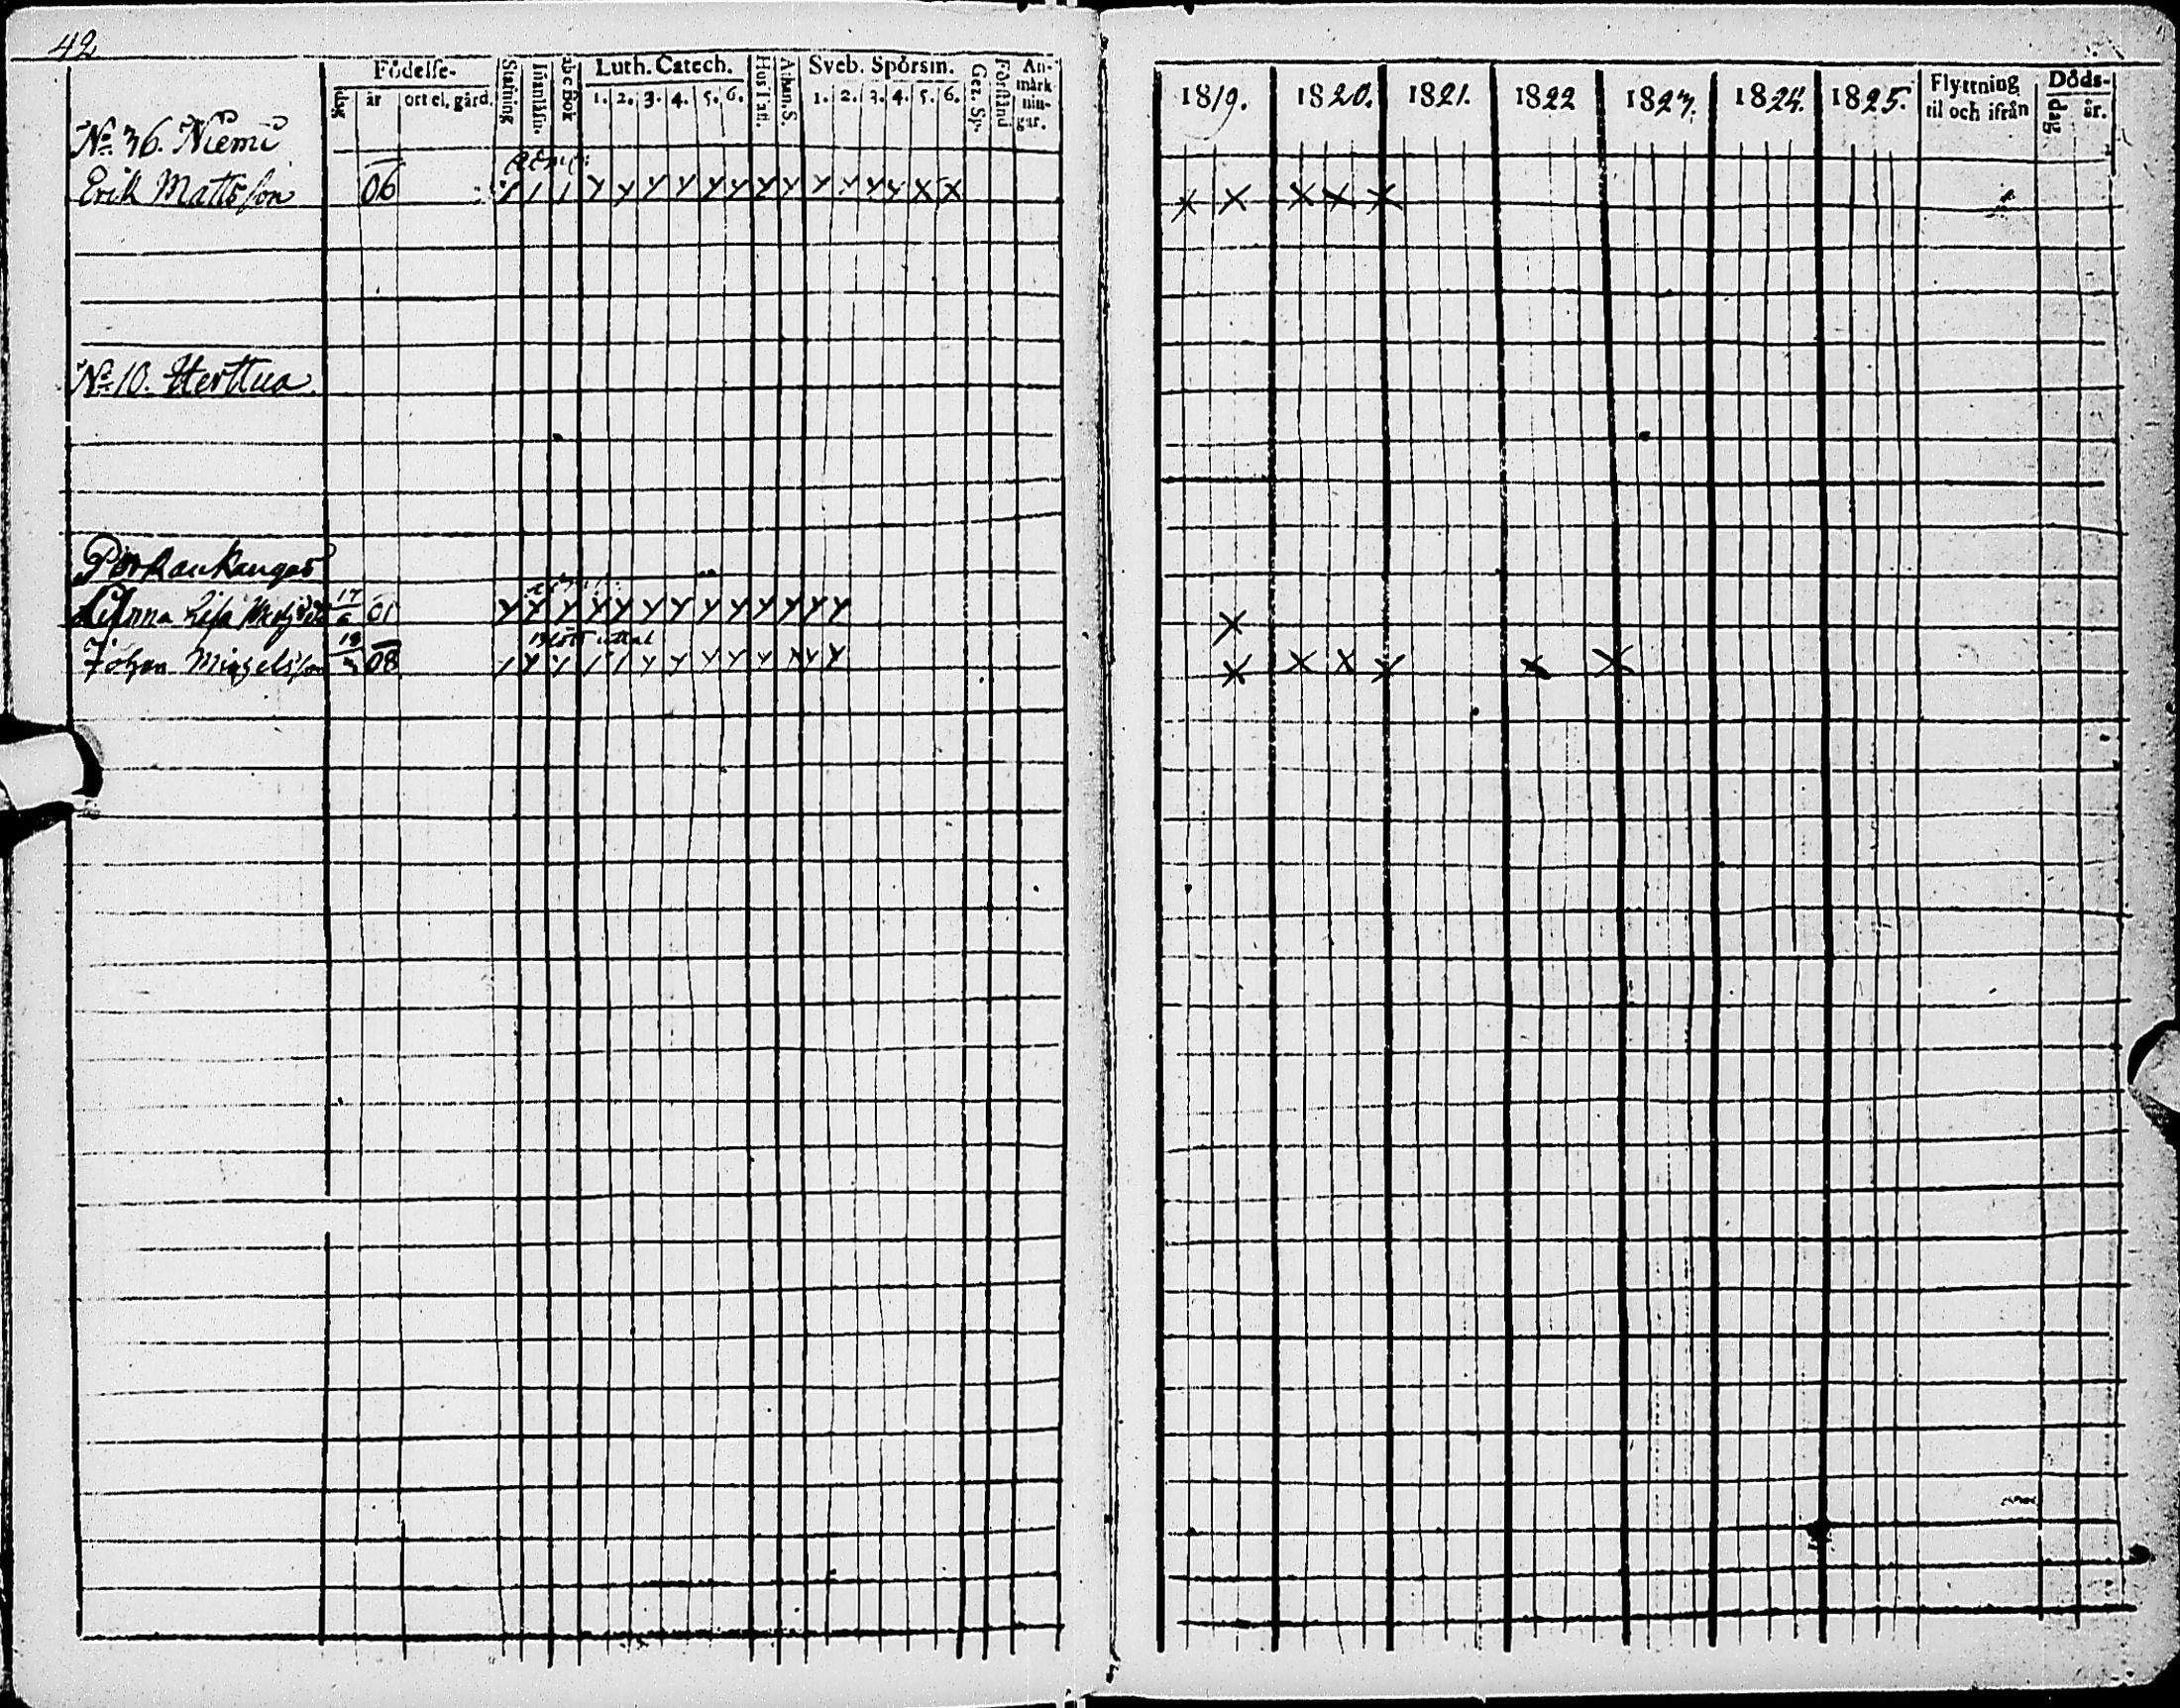 42
Födelse-
dag år ort el. gård.
Stafning
Innanläsn.
abc Bok
Luth. Catech.
1. 2. 3. 4. 5. 6.
Hus Tafl.
Athan. S.
Sveb. Spörsm.
1. 2. 3. 4. 5. 6.
Gez. Sp.
Förstånd
An-
märk
nin-
gar.
1819. 1820. 1821. 1822 1823. 1824. 1825.
Flyttning
til och ifrån
Döds-
dag år.
No 36. Niemi
Erik Mattsson 06
No 10. Herttua
Porkankangas
Anna Lisa 17/6 01
Johan Michelsson 08